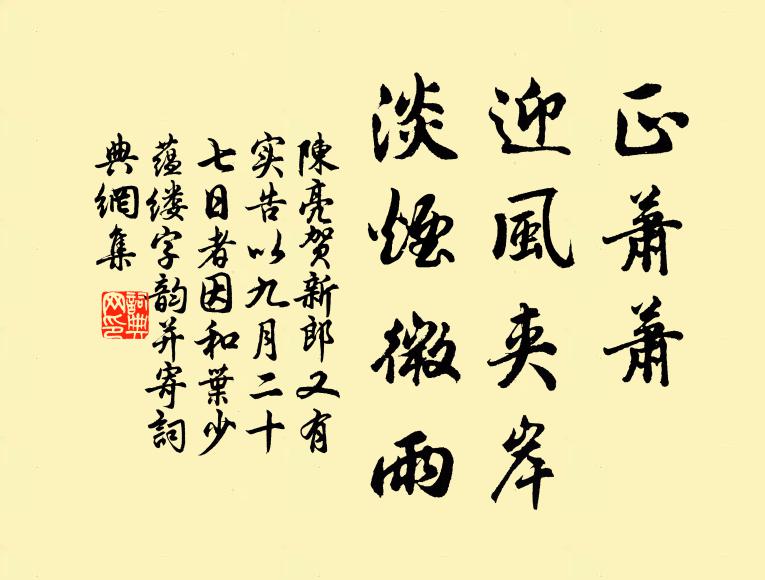 正蕭蕭
迎風夾岸
淡煙微雨
陳亮賀新郎又有
实告以九月二十
七日者因和葉少
蕴缕字韵并寄詞
典網集
詞典
网印